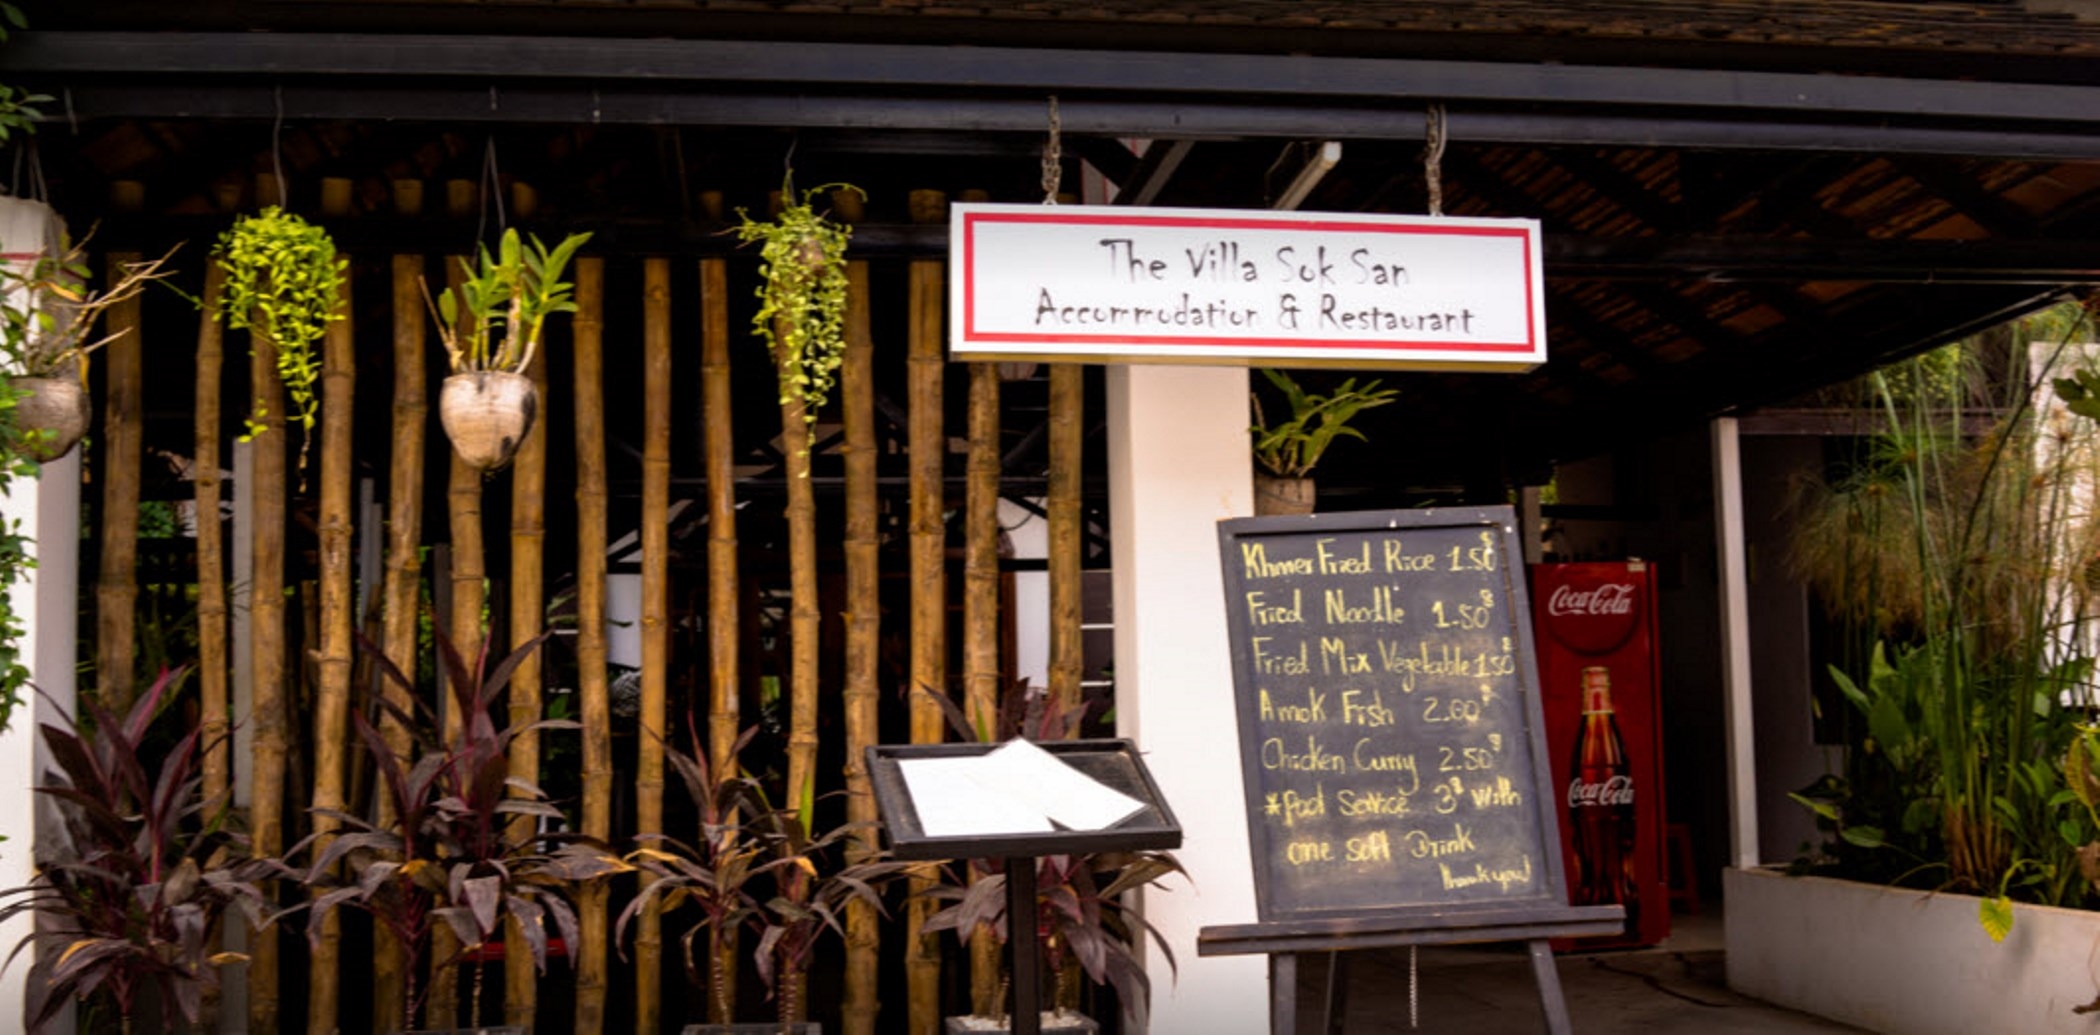 The Villa Sok San
Accommodation & Restaurant
Khmer Fried Rice 1.50$
Fried Noodle 1.50$
Fried Mix Vegetable 1.50$
Amok Fish 2.00$
Chicken Curry 2.50$
*Pool Service 3$ with
one soft Drink
Thank you!
Coca-Cola
Coca-Cola